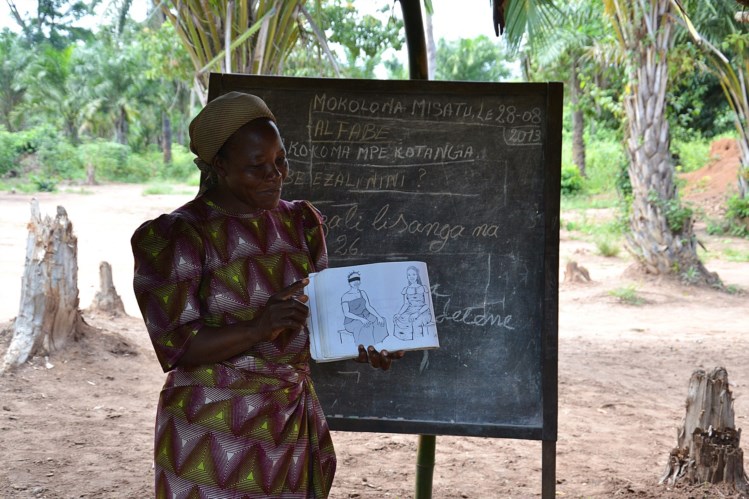 MOKOLO NA MISATU, LE 28-08
2013
ALFABE
KOKOMA MPE KOTANGA
EZALI NINI?
ali lisanga na
26